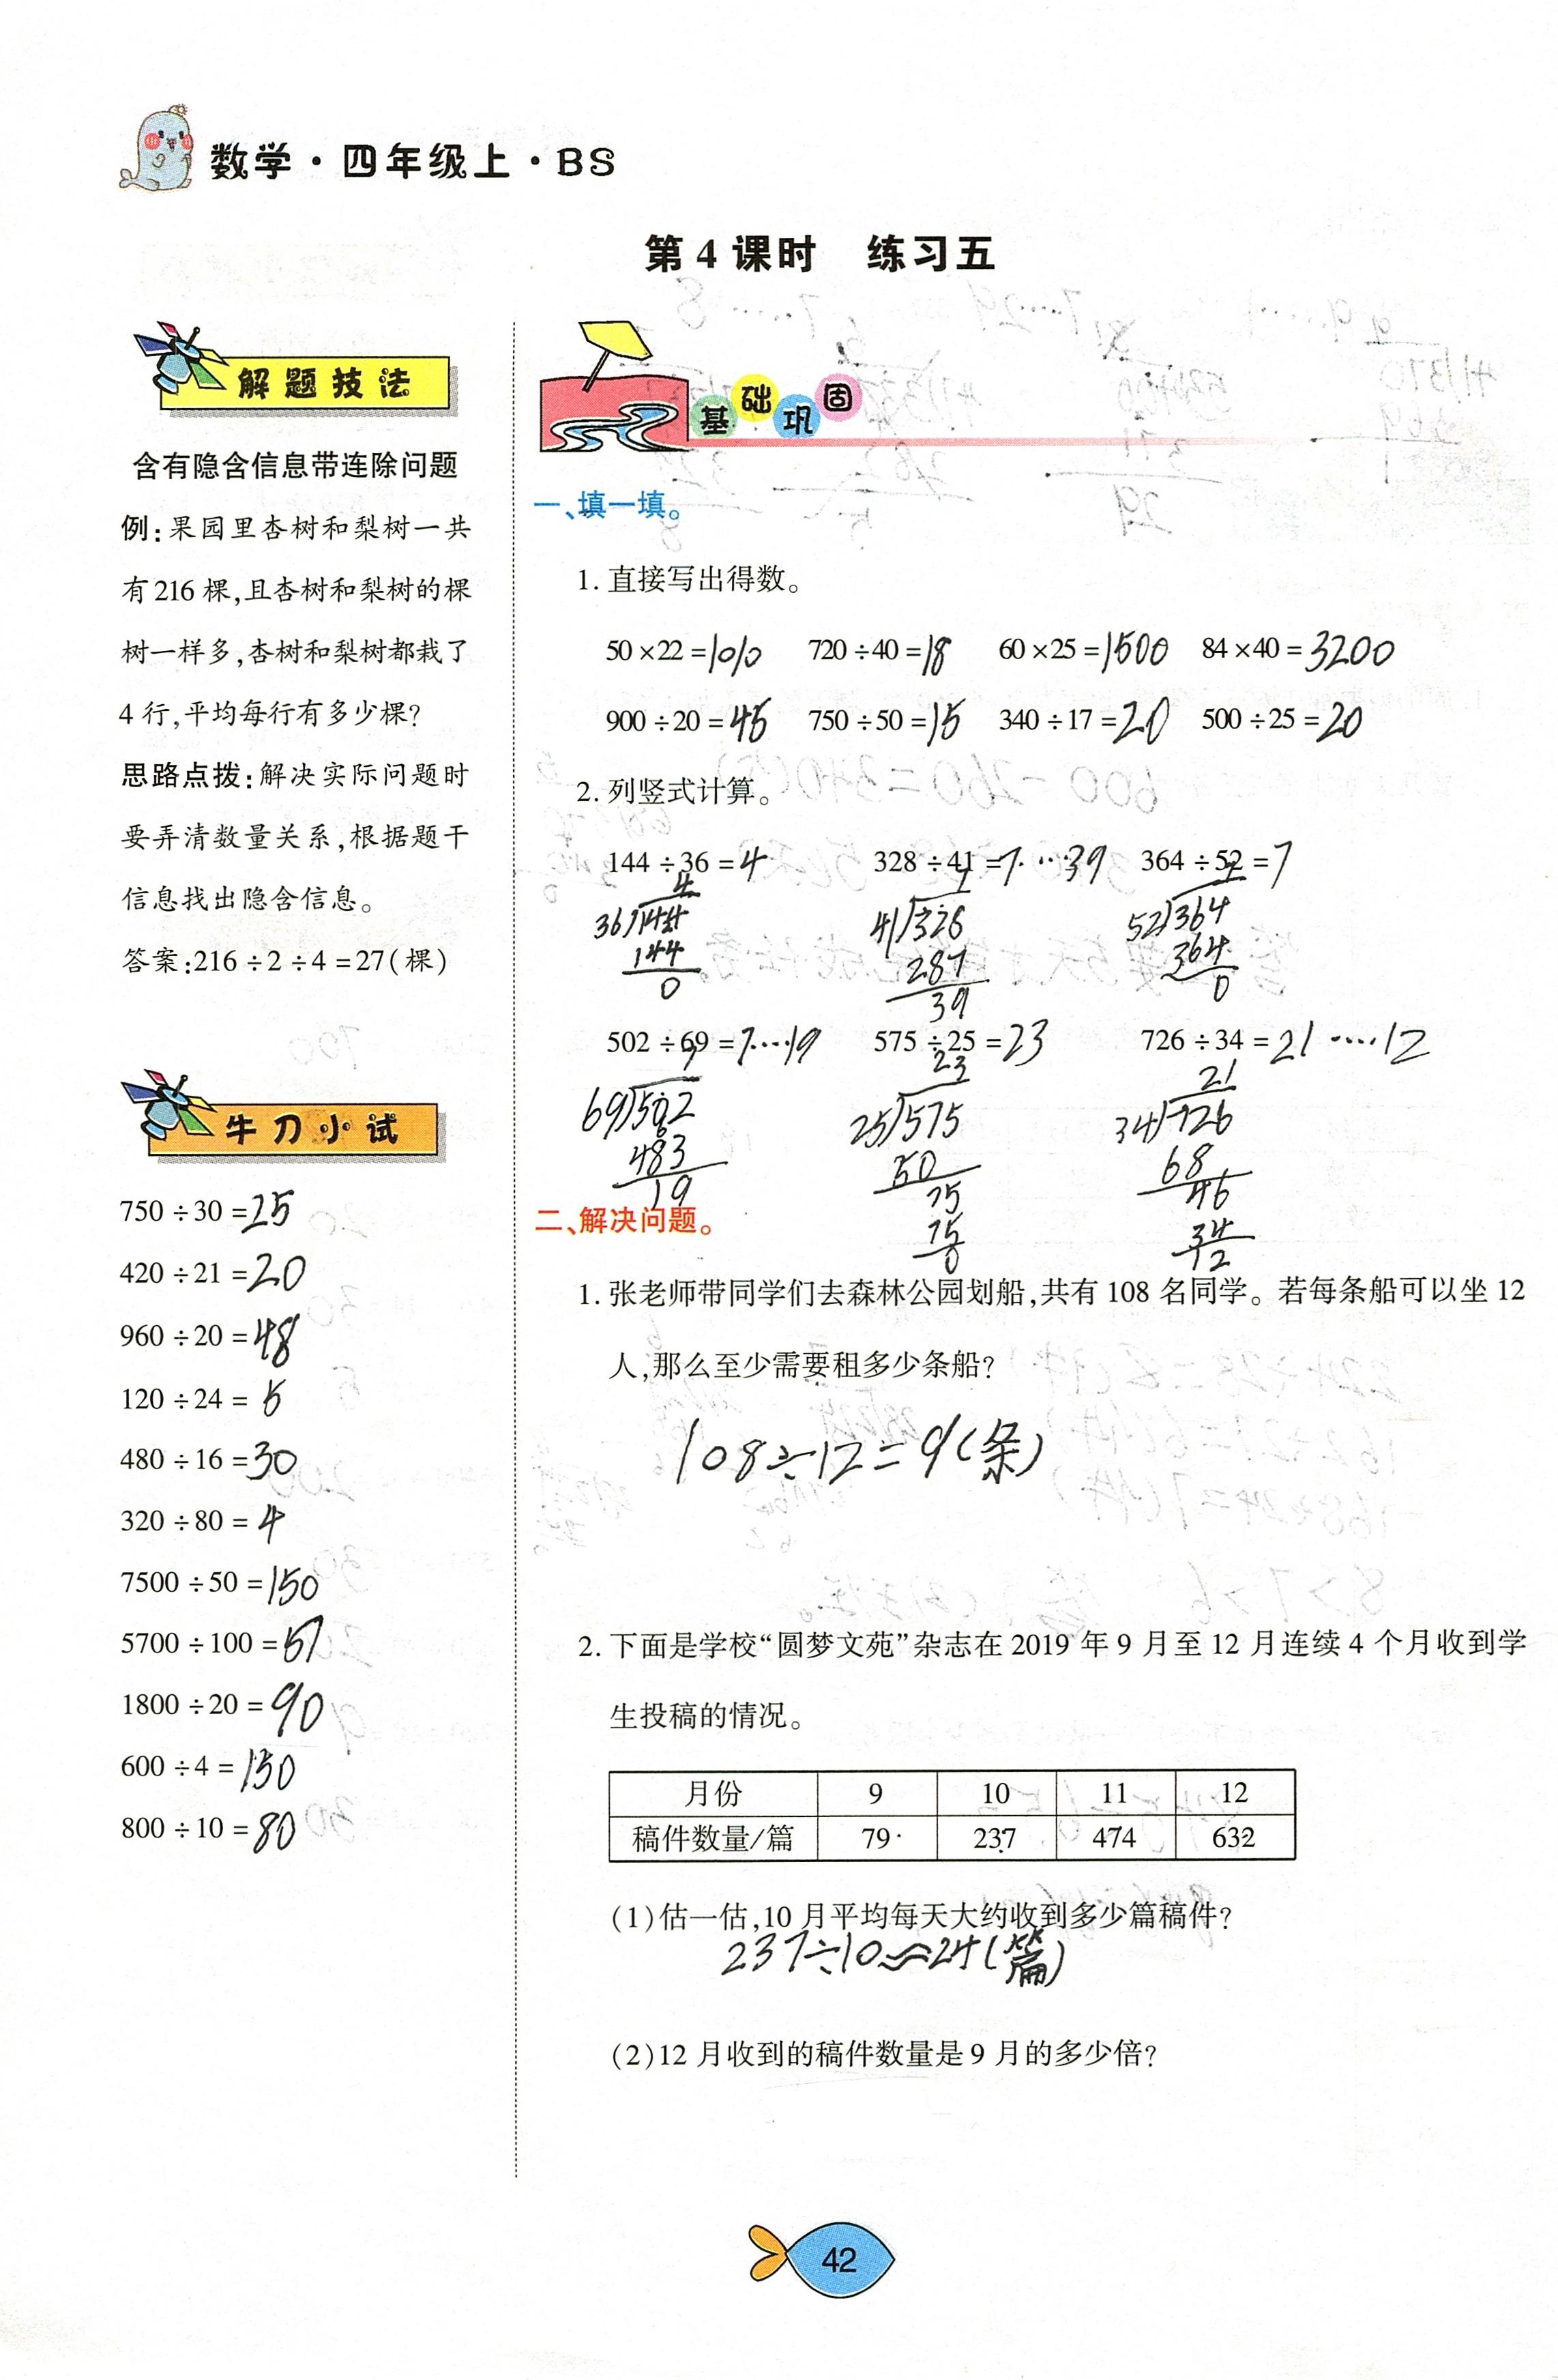 数学·四年级上·BS
第 4 课时 练习五
解题技法
含有隐含信息带连除问题
例:果园里杏树和梨树一共
有216棵,且杏树和梨树的棵
树一样多,杏树和梨树都栽了
4行,平均每行有多少棵?
思路点拨:解决实际问题时
要弄清数量关系,根据题干
信息找出隐含信息。
答案:216÷2÷4=27(棵)
牛刀小试
750÷30=25
420÷21=20
960÷20=48
120÷24=5
480÷16=30
320÷80=4
7500÷50=150
5700÷100=57
1800÷20=90
600÷4=150
800÷10=80
基础巩固
一、填一填。
1. 直接写出得数。
50×22=1010 720÷40=18 60×25=1500 84×40=3200
900÷20=45 750÷50=15 340÷17=20 500÷25=20
2. 列竖式计算。
144÷36=4 328÷41=7····39 364÷52=7
4 7 7
36)144 41)326 52)364
144 287 364
0 39 0
502÷69=7····19 575÷25=23 726÷34=21····12
7 23 21
69)502 25)575 34)726
483 50 68
19 75 46
75 34
0 12
二、解决问题。
1. 张老师带同学们去森林公园划船,共有108名同学。若每条船可以坐12
人,那么至少需要租多少条船?
108÷12=9(条)
2. 下面是学校“圆梦文苑”杂志在2019年9月至12月连续4个月收到学
生投稿的情况。
月份 9 10 11 12
稿件数量/篇 79 237 474 632
(1)估一估,10月平均每天大约收到多少篇稿件?
237÷10≈24(篇)
(2)12月收到的稿件数量是9月的多少倍?
42